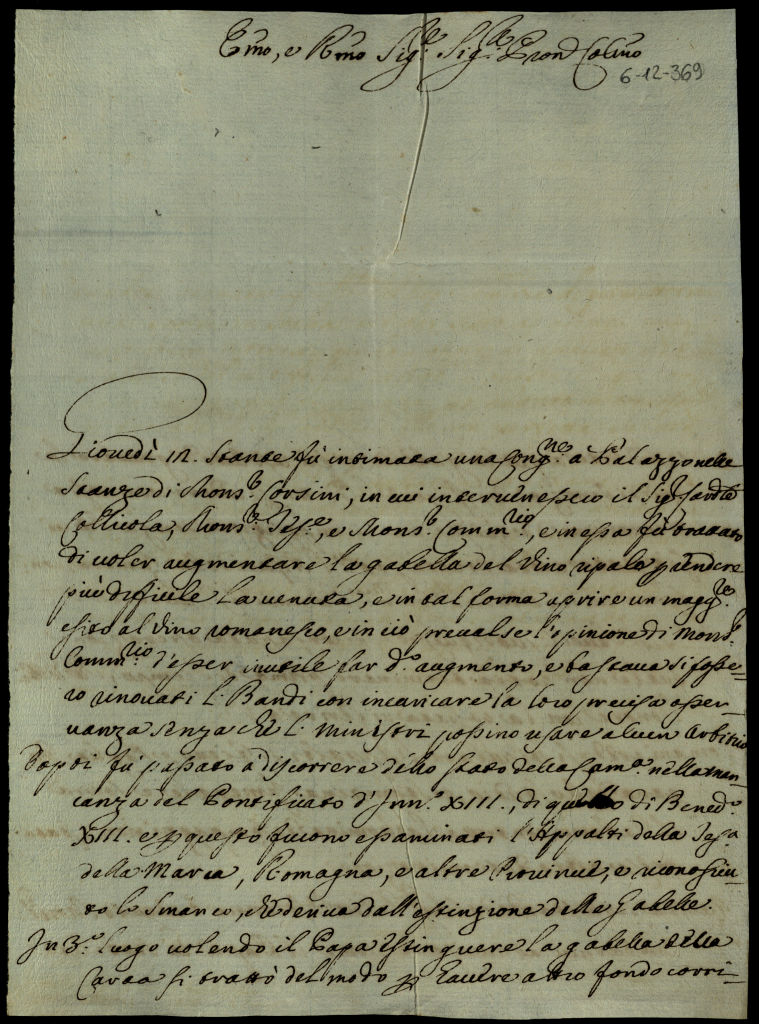 Emo, e Rmo Sig.re Sig.re Pron Colmo
6-12-369
Giovedì 12. Stante fù intimata una Cong.ne à Palazzo nelle
Stanze di Mons.r Corsini, in cui intervennero il Sig.
Collicola, Mons.r Tes.e, e Mons.r Comm.rio, e in essa fù trattato
di voler augmentare la gabella del Vino ripale p rendere
più difficile la venuta, e in tal forma aprire un magg.re
esito al Vino romanesco, e in ciò prevalse l'opinione di Mons.r
Comm.rio d'esser inutile far d.o augmento, e bastava si fosse-
ro rinovati l. Bandi con incaricare la loro precisa osser-
vanza senza che l. Ministri possino usare alcun Arbitrio
Doppoi fù passato à discorrere dello stato della Cam.a nella man-
canza del Pontificato d'Inn.o XIII., di quello di Bened.o
XIII. e p questo furono essaminati l'Appalti della Tes.a
della Marca, Romagna, e altre Provincie, e riconosciu-
to lo Smanco, che deriva dall'estinzione delle Gabelle.
In 3.o luogo volendo il Papa estinguere la gabella della
Carta si trattò del modo p havere altro fondo corri-